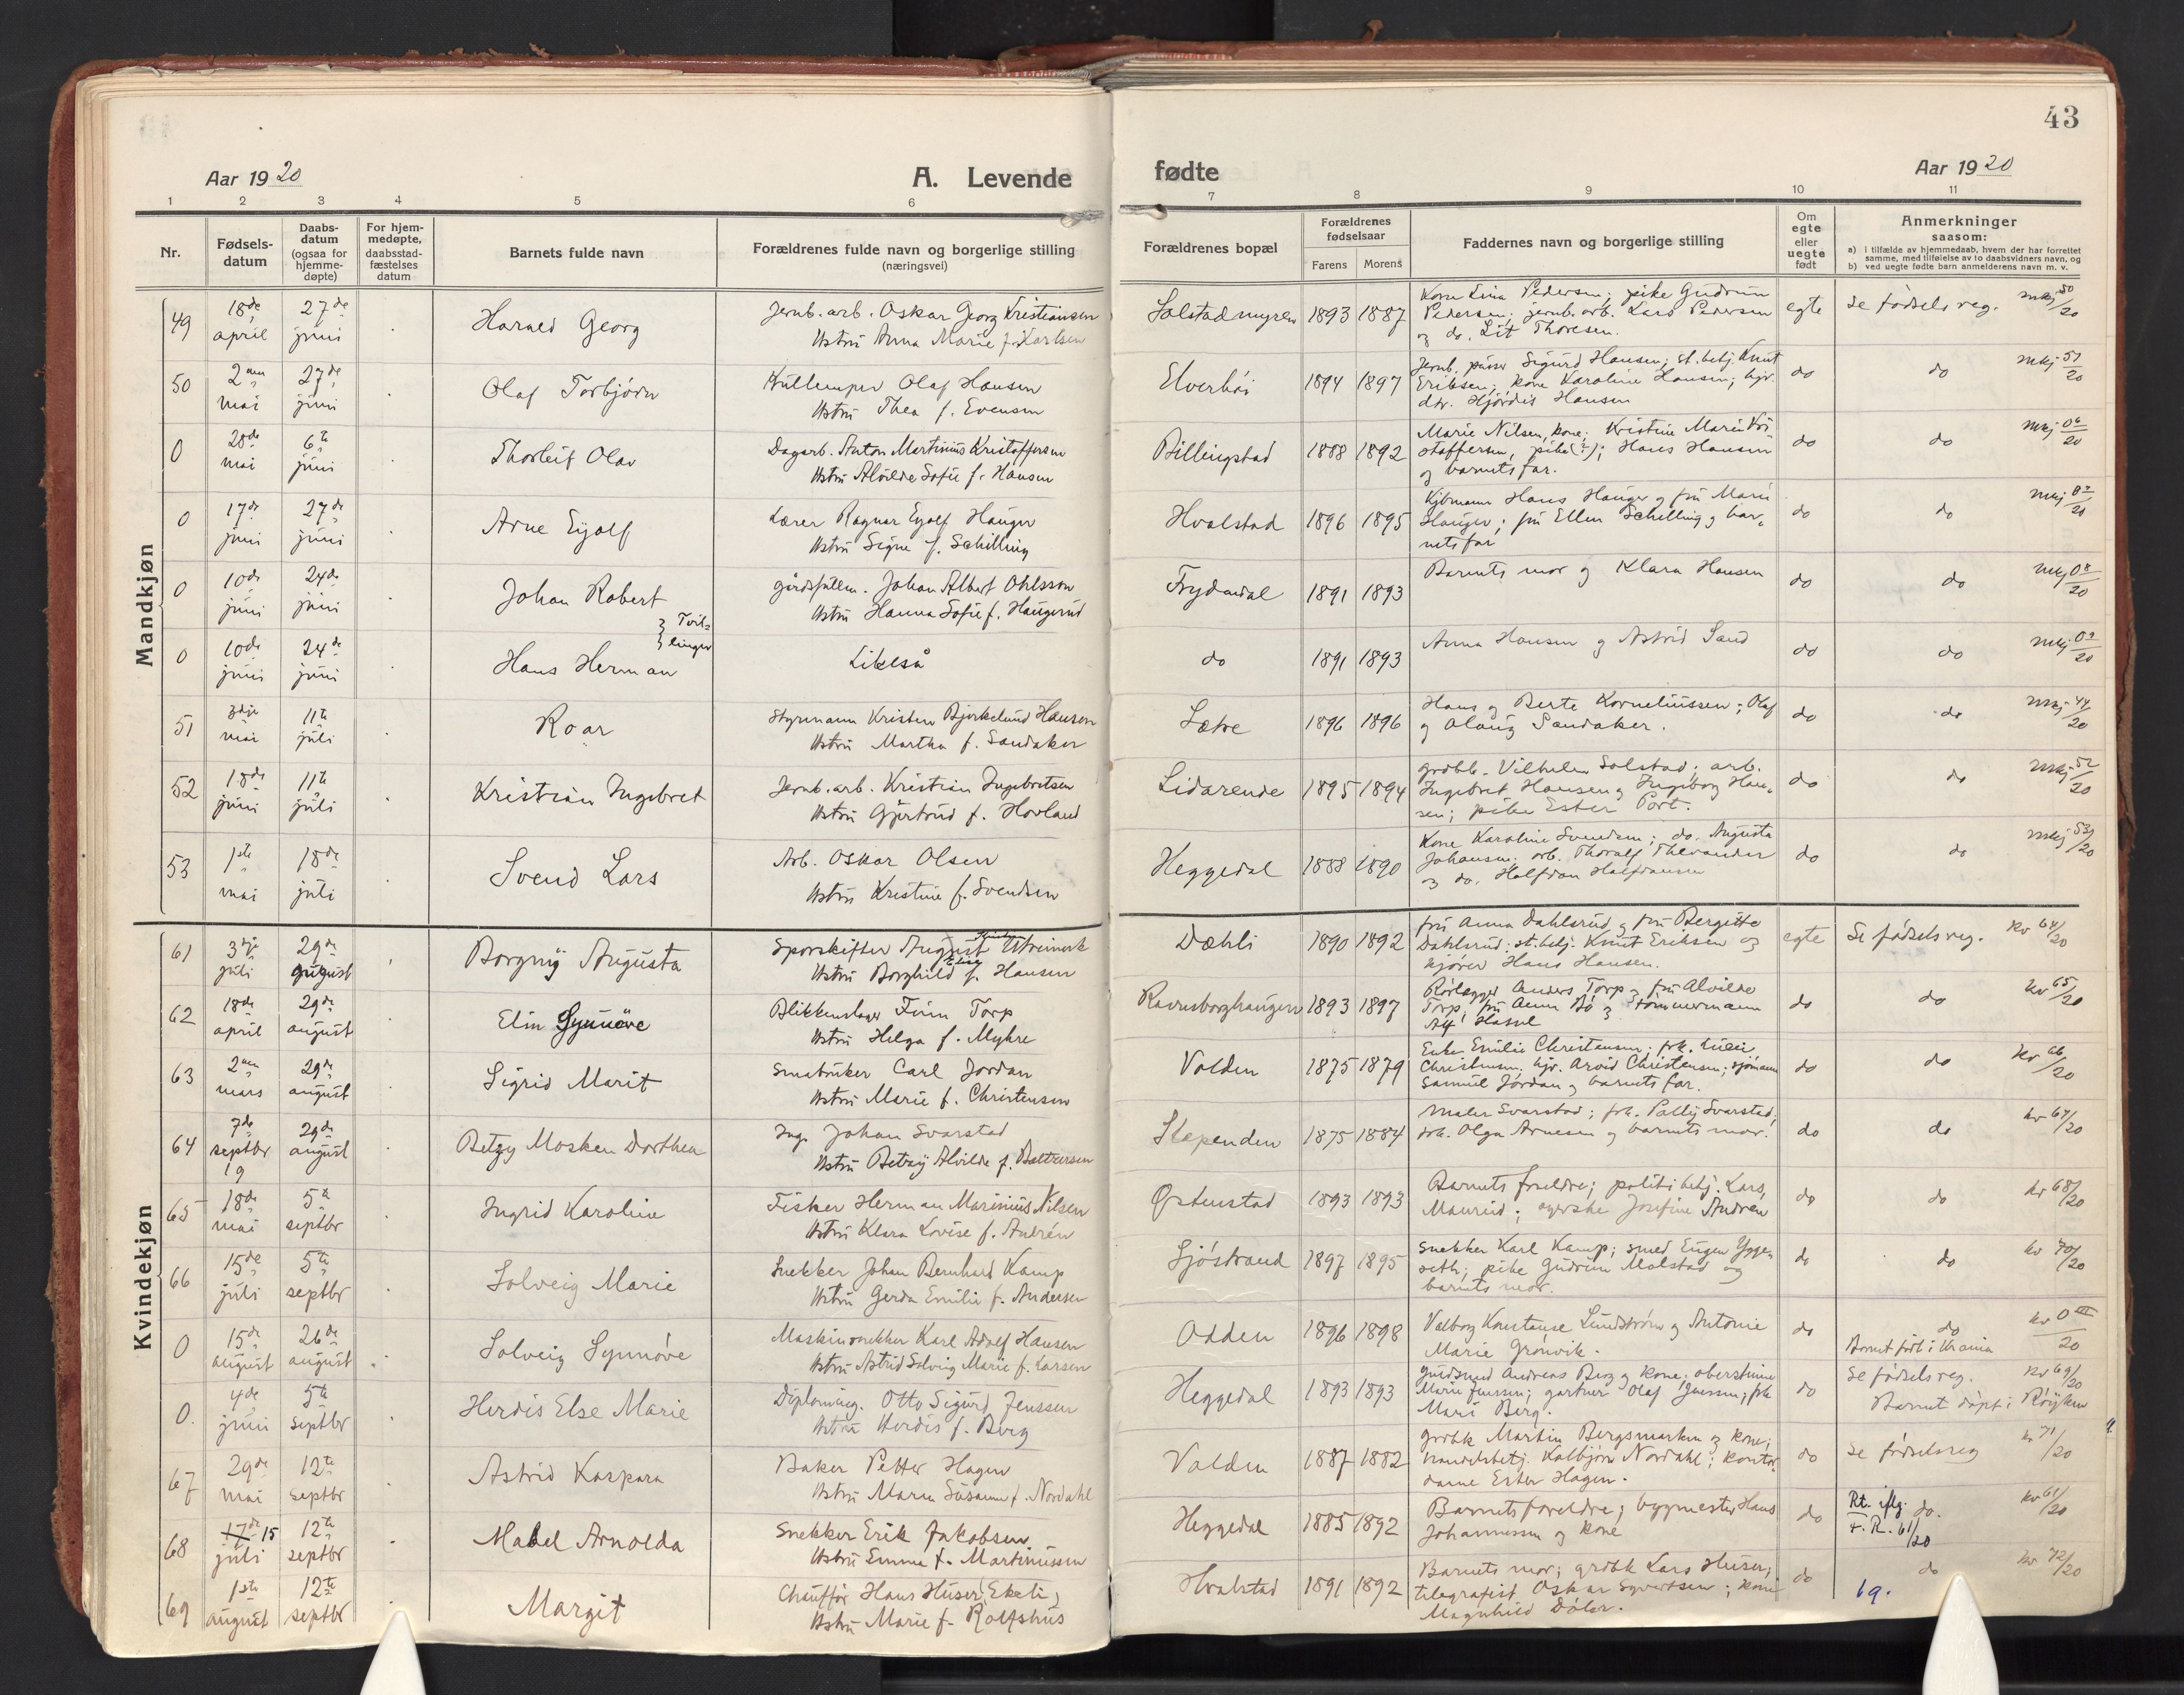 43
Aar 1920
A. Levende
fødte
Aar 1920
1 2 3 4 5 6 7 8 9 10 11
Nr.
Fødsels-
datum
Daabs-
datum
(ogsaa for
hjemme-
døpte)
For hjem-
medøpte,
daabsstad-
fæstelses
datum
Barnets fulde navn
Forældrenes fulde navn og borgerlige stilling
(næringsvei)
Forældrenes bopæl
Forældrenes
fødselsaar
Farens Morens
Faddernes navn og borgerlige stilling
Om
egte
eller
uegte
født
Anmerkninger
saasom:
a) i tilfælde av hjemmedaab, hvem der har forrettet
samme, med tilføielse av to daabsvidners navn, og
b) ved uegte fødte barn anmelderens navn m. v.
Mandkjøn
49 18de april 27de juni Harald Georg
Jernb. arb. Oskar Georg Kristiansen
Hstru Anna Marie f. Karlsen
Solstadmyren 1893 1887
Kone Lina Pedersen; pike Gudrun
Pedersen; jernb. arb. Lars Pedersen
og do. Thoresen.
egte Se fødselsreg. mkj 50/20
50 2den mai 27de juni Olaf Torbjørn
Olaf Hansen
Hstru Thea f. Evensen
Elverhøi 1894 1897
Jernb. Sigurd Hansen; st. betj. Knut
Eriksen; kone Karoline Hansen; hjv.
dtr. Hjørdis Hansen
do do mkj 51/20
0 28de mai 6te juni Thorleif Olav
Dagarb. Anton Martinius Kristoffersen
Hstru Alvilde Sofie f. Hansen
Billingstad 1888 1892
Marie Nilsen, kone; Kristine Marie Kri-
stoffersen, pike(?); Hans Hansen
og barnets far.
do do mkj 06/20
0 17de juni 27de juni Arne Eyolf
Lærer Ragnar Eyolf Hauger
Hstru Signe f. Schilling
Hvalstad 1896 1895
Kjbmann Hans Hauger og fru Marie
Hauger; fru Ellen Schilling og bar-
nets far
do do mkj 07/20
0 10de juni 24de juni Johan Robert
Tvil-
linger
gårdsfullm. Johan Albert Ohlsson
Hstru Hanna Sofie f. Haugerud
Frydendal 1891 1893
Barnets mor og Klara Hansen
do do mkj 08/20
0 10de juni 24de juni Hans Herman
Likeså
do 1891 1893
Anna Hansen og Astrid Sand
do do mkj 09/20
51 3dje mai 11te juli Roar
Styrmann Kristen Bjerkelund Hansen
Hstru Martha f. Sandaker
Sætre 1896 1896
Hans og Berte Korneliussen; Olaf
og Olaug Sandaker.
do do mkj 44/20
52 18de juni 11te juli Kristian Ingebret
Jernb. arb. Kristian Ingebretsen
Hstru Gjertrud f. Hovland
Lidarende 1895 1894
grdbk. Vilhelm Solstad; arb.
Ingebret Hansen og Ingeborg Han-
sen; pike Ester Port.
do do mkj 52/20
53 1ste mai 18de juli Svend Lars
Arb. Oskar Olsen
Hstru Kristine f. Svendsen
Heggedal 1888 1890
Kone Karoline Svendsen; do. Augusta
Johansen; arb. Thoralf Thevander
og do. Halfdan Halfdansen
do do mkj 53/20
Kvindekjøn
61 3dje juli 29de august Borgny Augusta
Sporskifter August
Hstru Borghild f. Hansen
Dæhli 1890 1892
fru Anna Dahlsrud og fru Bergitte
Dahlsrud; st. betj. Knut Eriksen og
kjører Hans Hansen.
egte Se fødselsreg. kv 64/20
62 18de april 29de august Elin Synnøve
Blikkenslager Finn Torp
Hstru Helga f. Myhre
Ravnsborghaugen 1893 1897
Rørlegger Anders Torp og fru Alvilde
Torp; fru Anna Bö og tömmermann
Alf Hassel
do do kv 65/20
63 2den mars 29de august Sigrid Marit
Småbruker Carl Jordan
Hstru Marie f. Christensen
Volden 1875 1879
Enke Emilie Christensen; frk.
Christensen; hjv. Arvid Christensen; sjömann
Samuel Jordan og barnets far.
do do kv 66/20
64 7de septbr 19 29de august Betzy Mosken Dorthea
Ing. Johan Svarstad
Hstru Betzy Alvilde f.
Slependen 1875 1884
Maler Svarstad; frk. Polly Svarstad;
frk. Olga Arnesen og barnets mor.
do do kv 67/20
65 18de mai 5te septbr Ingrid Karoline
Fisker Herman Marinius Nilsen
Hstru Klara Lovise f. Andrén
Østenstad 1893 1893
Barnets foreldre; politibetj. Lars
Maurud; Josefine Andren
do do kv 68/20
66 15de juli 5te septbr Solveig Marie
Snekker Johan Bernhard Kamp
Hstru Gerda Emilie f. Andersen
Sjöstrand 1897 1895
Snekker Karl Kamp; smed Eugen Ygge-
seth; pike Gudrun Molstad og
barnets mor.
do do kv 70/20
0 15de august 26de august Solveig Synnöve
Maskinsnekker Karl Adolf Hansen
Hstru Astrid Solveig Marie f. Larsen
Odden 1896 1898
Valborg Konstanse Lundström og Antonie
Marie Grönvik.
do do kv 0 /20
Barnet født i Kr.ania
0. 4de juni 5te septbr Herdis Else Marie
Diploming. Otto Sigurd Jenssen
Hstru Herdis f. Berg
Heggedal 1893 1893
Andreas Berg og kone;
Marie Jenssen; gartner Olaf Jenssen; frk
Mari Berg.
do Se fødselsreg. kv 69/20
Barnet döpt i Röyken
67 29de mai 12te septbr Astrid Kaspara
Baker Petter Hagen
Hstru Maren Susanne f. Nordahl
Volden 1887 1882
grdbk Martin Bergsmarken og kone;
handelsbetj. Kolbjörn Nordahl; kontor
dame Ester Hagen.
do Se fødselsreg kv 71/20
68 17de 15 juli 12te septbr Mabel Arnolda
Snekker Erik Jakobsen
Hstru Emma f. Martinussen
Heggedal 1885 1892
Barnets foreldre; bygmester Hans
Johannessen og kone
do Rt. iflg. do. kv 61/20
F. R. 61/20
69 1ste august 12te septbr Margit
Chauffør Hans Huser (Ekeli)
Hstru Marie f. Rolfshus
Hvalstad 1891 1892
Barnets mor; grdbk Lars Huser;
telegrafist Oskar Syvertsen; kone
Magnhild
do do kv 72/20
19.